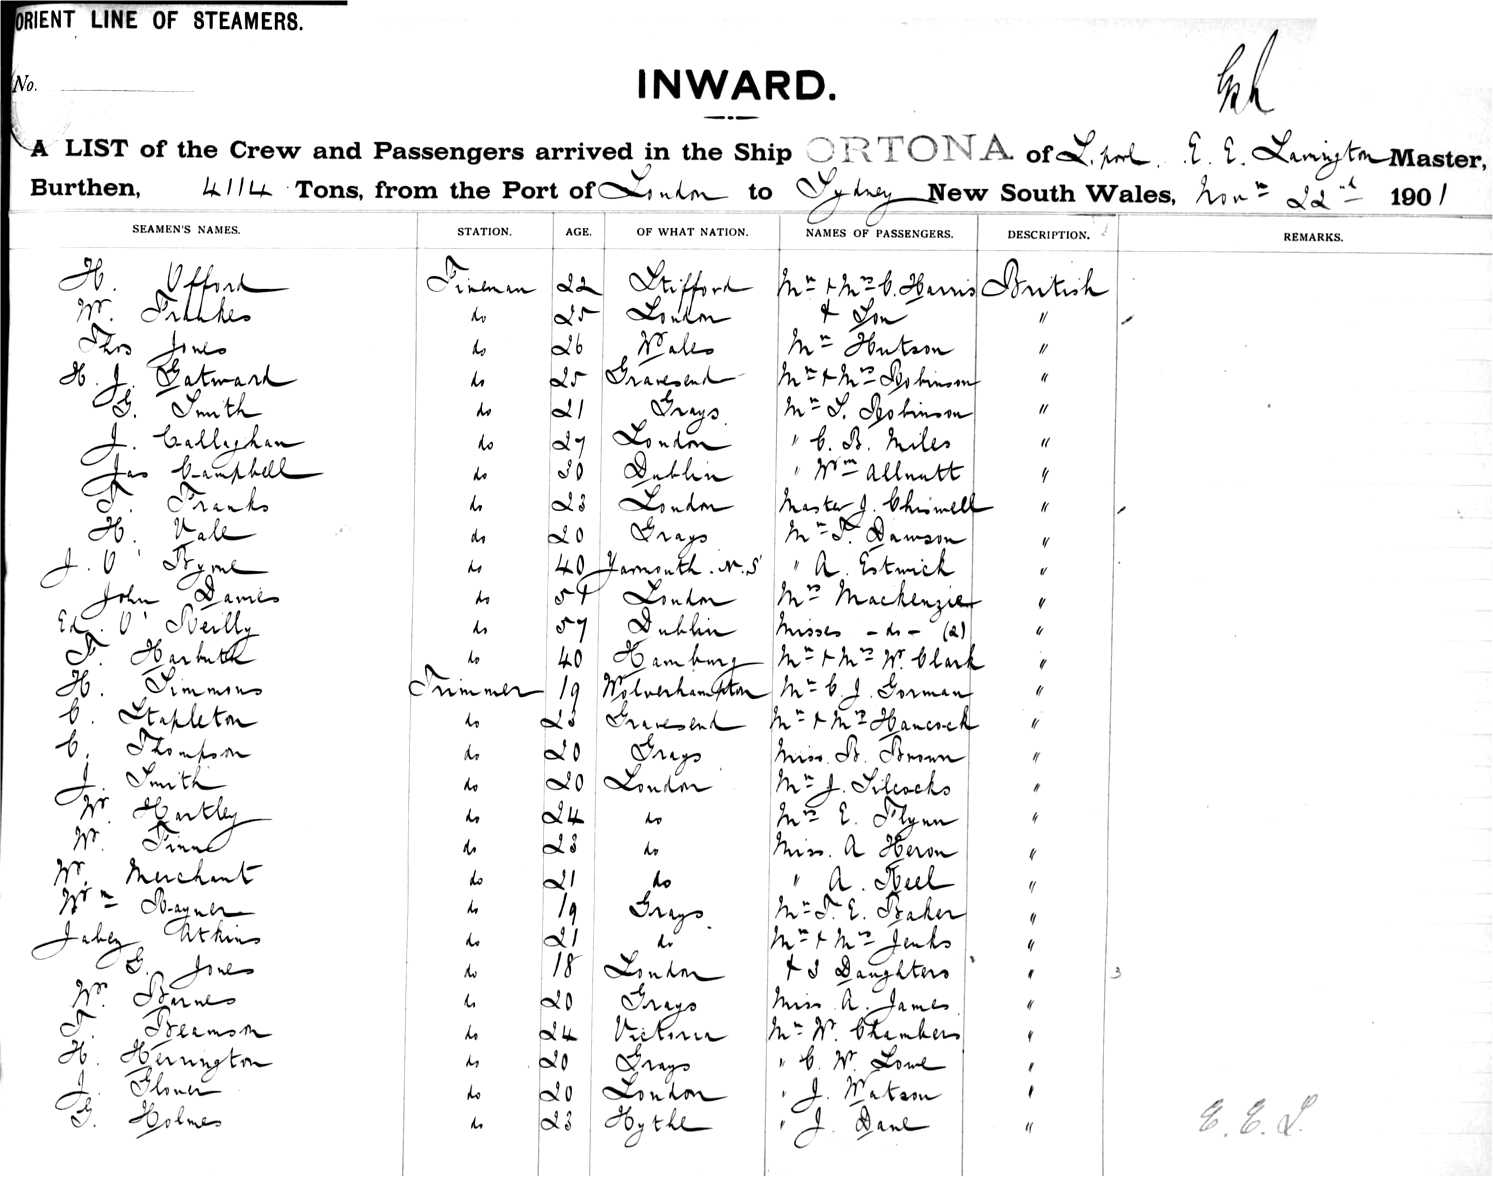 ORIENT LINE OF STEAMERS.
No.
INWARD.
A LIST of the Crew and Passengers arrived in the Ship ORTONA of L.pool. E. E. Lavington Master,
Burthen, 4114 Tons, from the Port of London to Sydney New South Wales, Novr 22nd 1901
SEAMEN'S NAMES. STATION. AGE. OF WHAT NATION. NAMES OF PASSENGERS. DESCRIPTION. REMARKS.
H. Ufford Fireman 22 Stifford Mr & Mrs C. Harris British
W. Franks do 25 London & Son "
Thos Jones do 26 Wales Mr Hutson "
H. J. Gatward do 25 Gravesend Mr & Mrs Robinson "
G. Smith do 21 Grays Mr S. Robinson "
J. Callaghan do 27 London " C. B. Miles "
Jas Campbell do 30 Dublin " Wm Allnutt "
T. Franks do 23 London Master J. Chiswell "
H. Vale do 20 Grays Mr T. Dawson "
J. O'Byrne do 40 Yarmouth. N.S " A. Estwick "
John Davies do 54 London Mrs Mackenzie "
Ed. O'Reilly do 57 Dublin Misses - do - (2) "
F. Harbuth do 40 Hamburg Mr & Mrs W. Clark "
H. Simmons Trimmer 19 Wolverhampton Mr C. J. Gorman "
C. Stapleton do 23 Gravesend Mr & Mrs Hancock "
C. Thompson do 20 Grays Miss B. Brown "
J. Smith do 20 London Mr J. Silcocks "
W. Hartley do 24 do Mrs E. Flynn "
W. Finne do 23 do Miss. A Heron "
W. Merchant do 21 do " A. Keel "
Wm Rayner do 19 Grays Mr T. E. Baker "
Jabez Atkins do 21 do Mr & Mrs Jenks "
G. Jones do 18 London & 3 Daughters " 3
W. Barnes do 20 Grays Miss A. James "
T. Beamson do 24 Victoria Mr W. Chambers "
H. Herrington do 20 Grays " C. W. Lowe "
J. Glover do 20 London " J. Watson "
G. Holmes do 23 Hythe " J. Dane "
E. E. L.